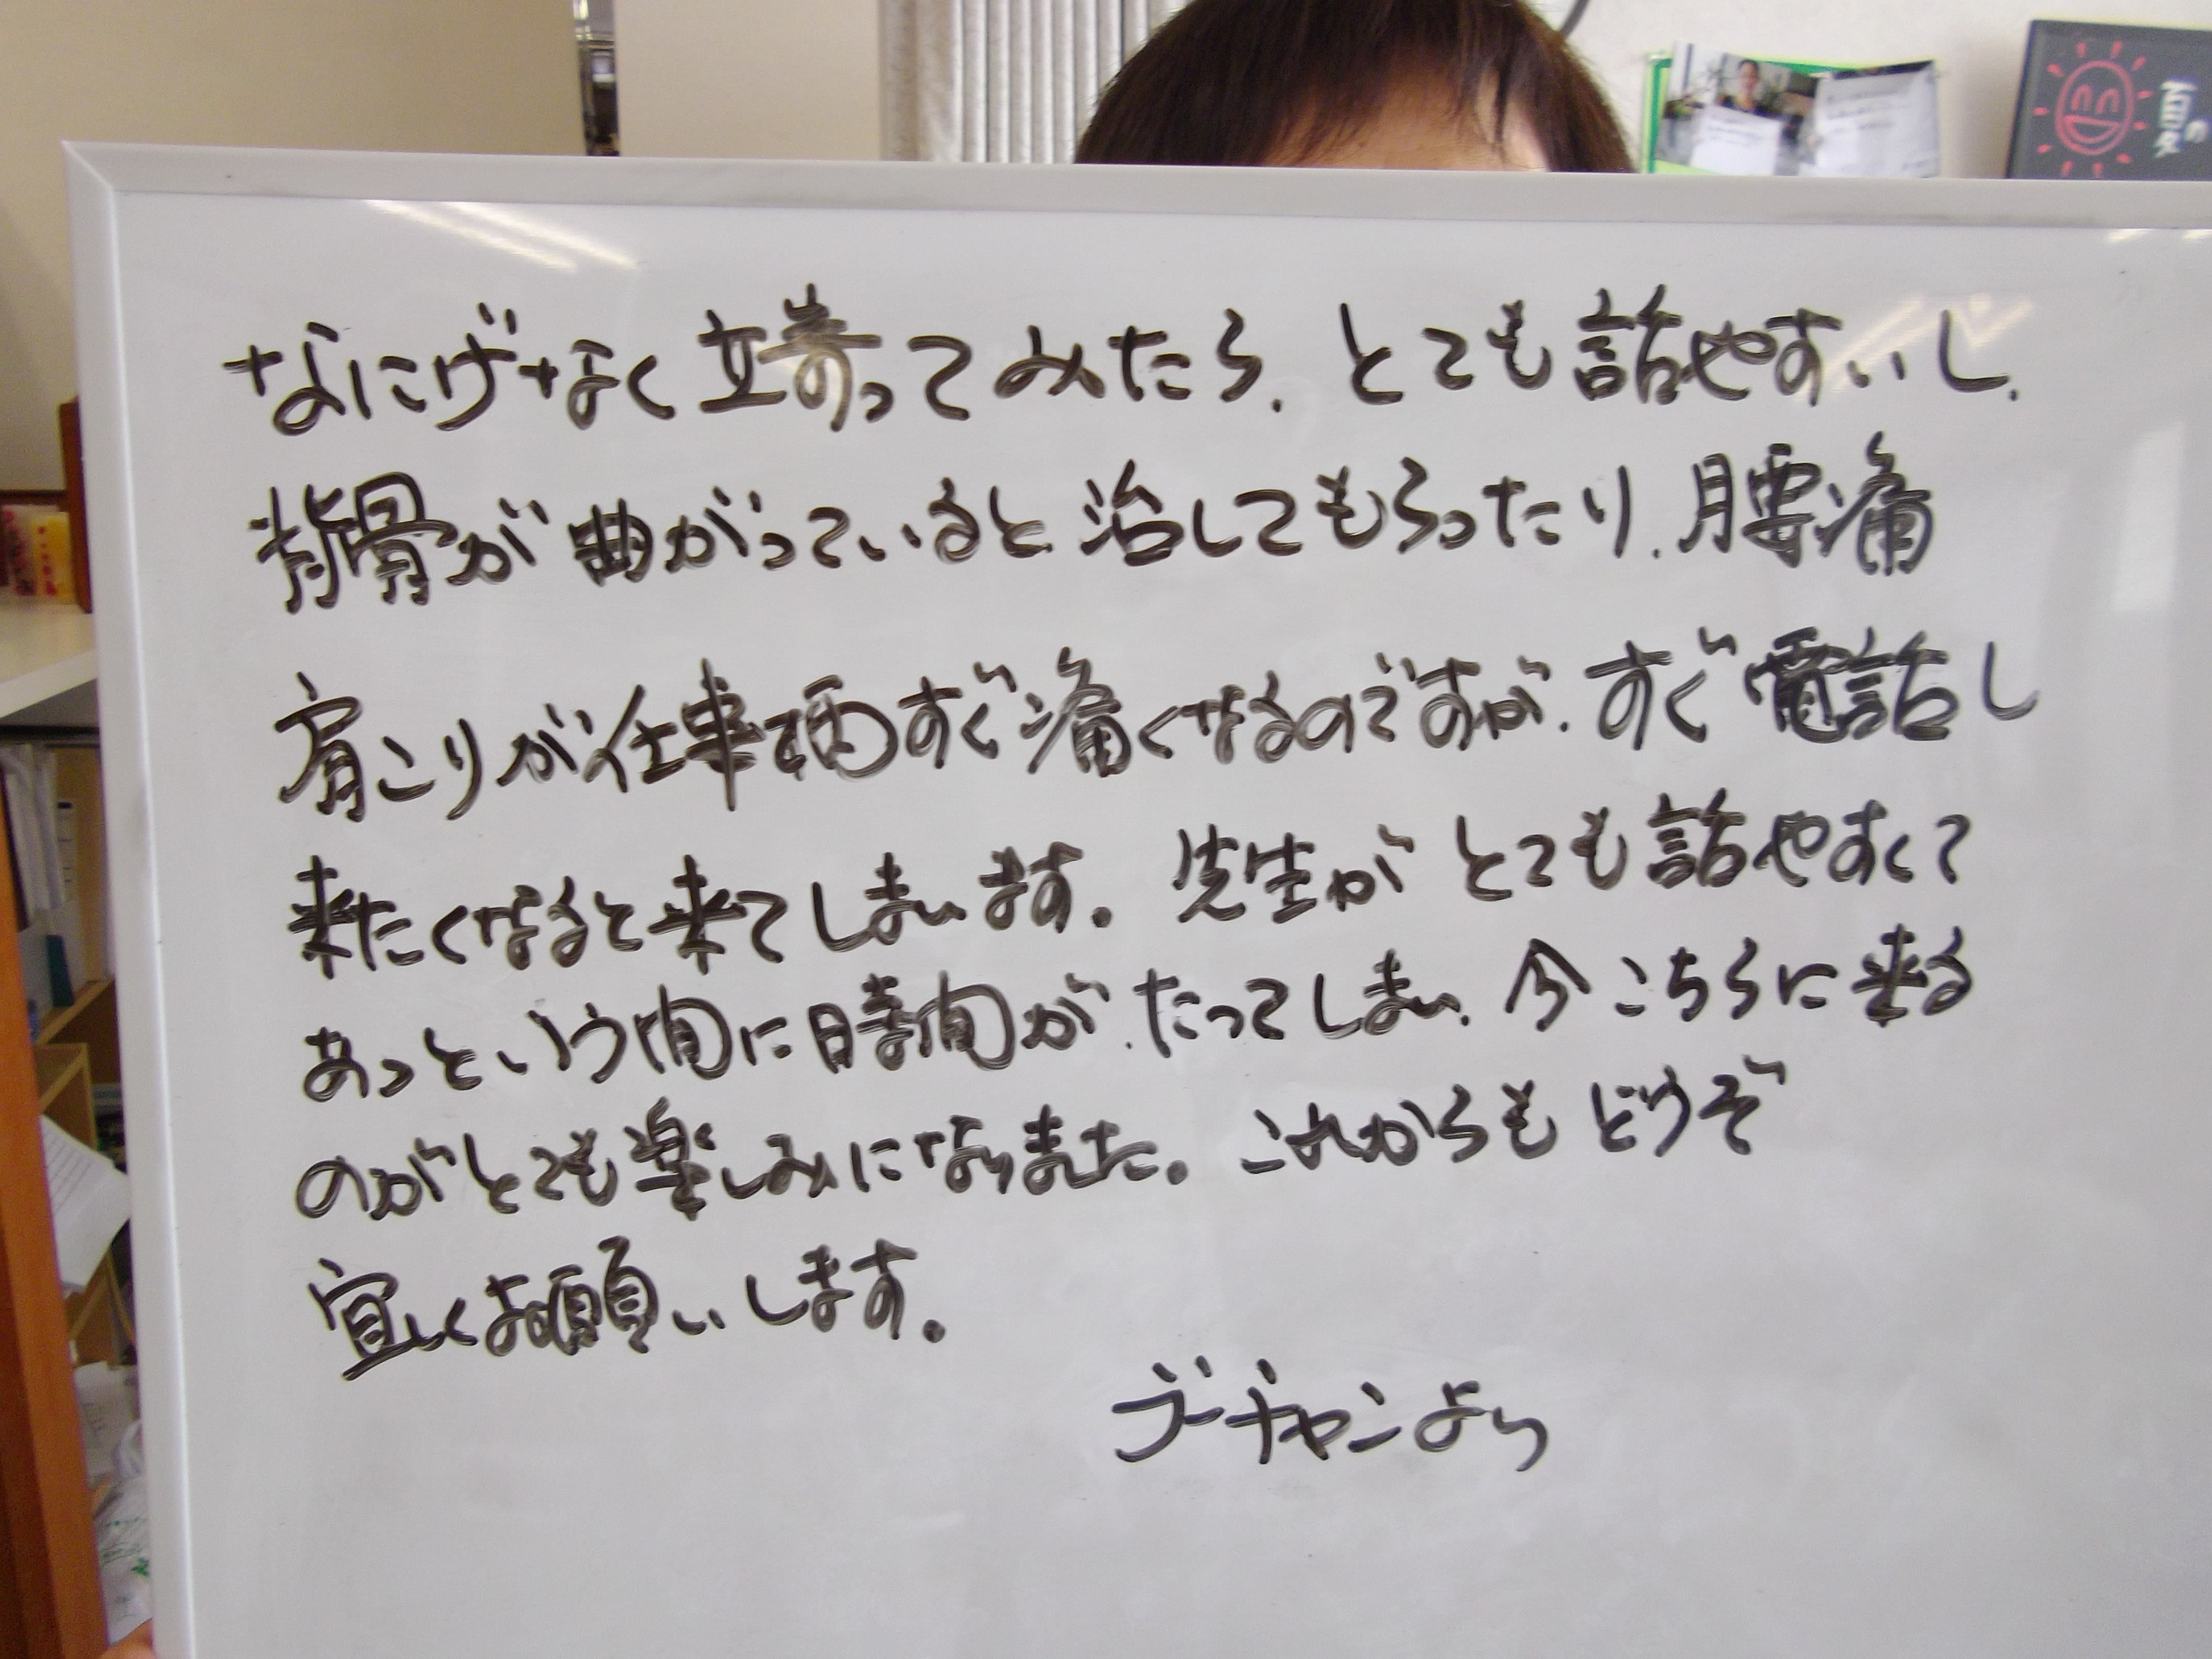 なにげなく立寄ってみたら、とても話やすいし、
背骨が曲がっていると治してもらったり、腰痛
肩こりが仕事柄すぐ痛くなるのですが、すぐ電話し
来たくなると来てしまいます。先生がとても話やすくて
あっという間に時間が、たってしまい、今こちらに来る
のがとても楽しみになりました。これからもどうぞ
宜しくお願いします。
ブーチャンより